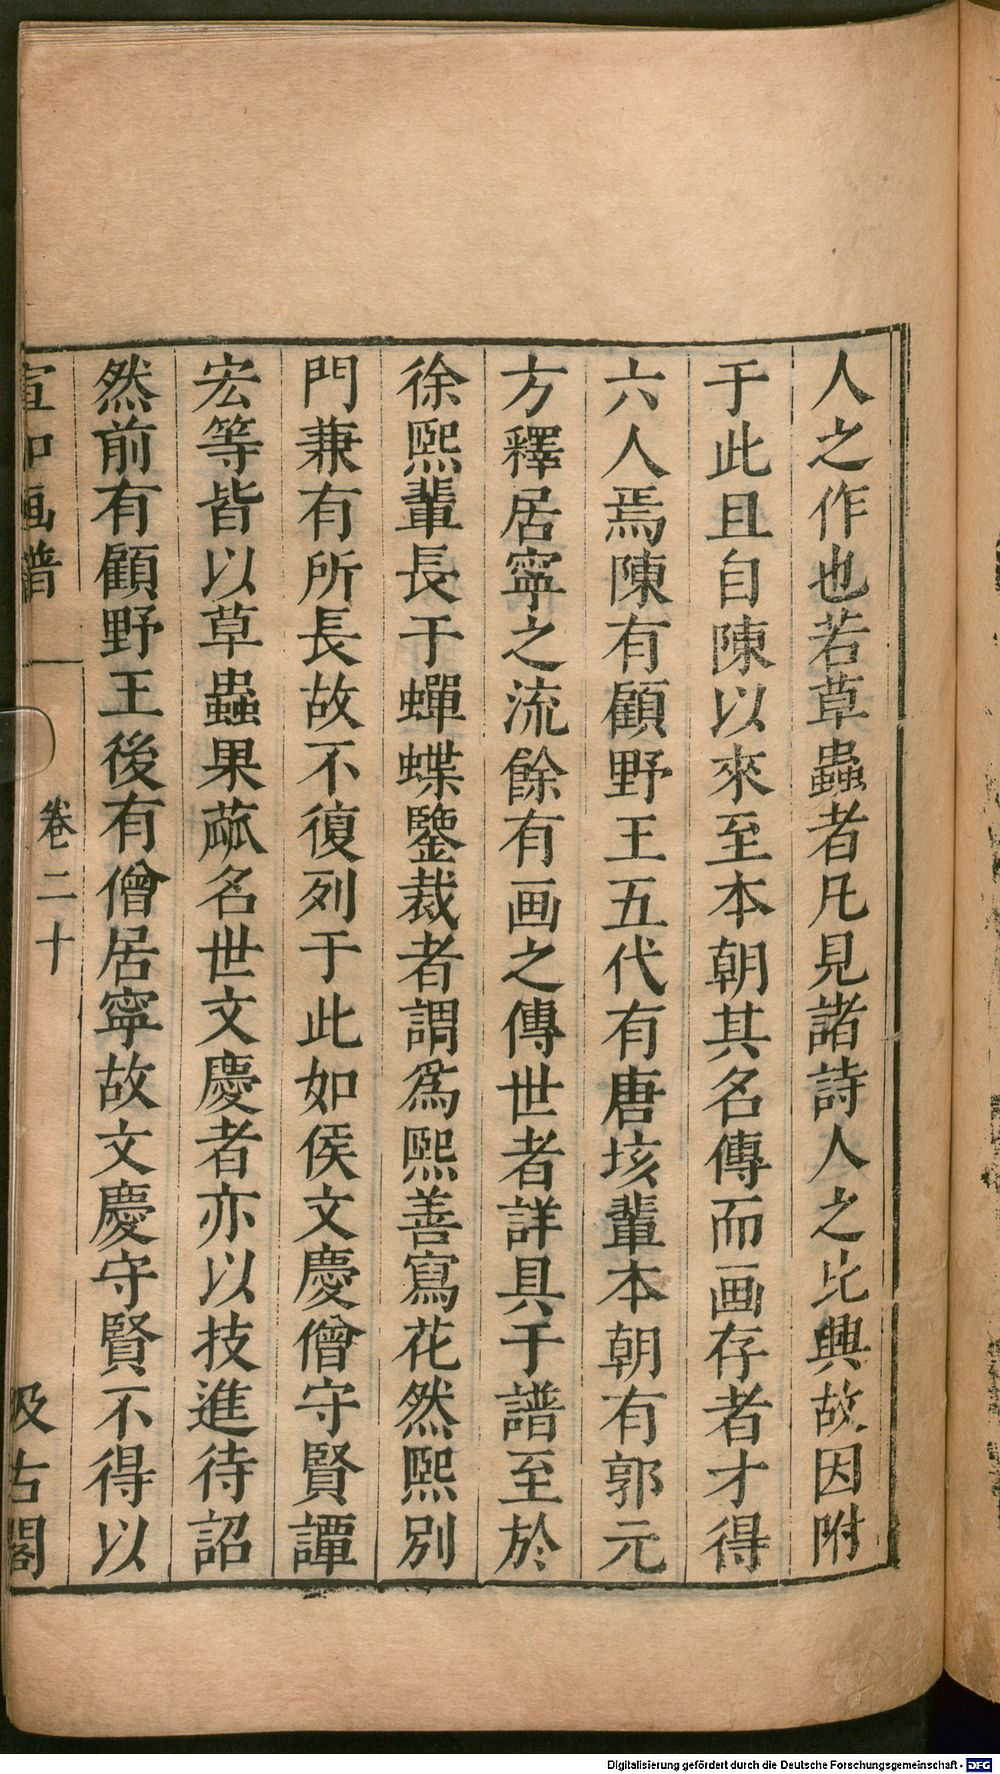 人之作也若草蟲者凡見諸詩人之比興故因附
于此且自陳以來至本朝其名傳而画存者才得
六人焉陳有顧野王五代有唐垓輩本朝有郭元
方釋居寧之流餘有画之傳世者詳具于譜至於
徐熙輩長于蟬蝶鑒裁者謂爲熙善寫花然熙別
門兼有所長故不復列于此如侯文慶僧守賢譚
宏等皆以草蟲果蓏名世文慶者亦以技進待詔
然前有顧野王後有僧居寧故文慶守賢不得以
宣和画譜
卷二十
汲古閣
Digitalisierung gefördert durch die Deutsche Forschungsgemeinschaft - DFG